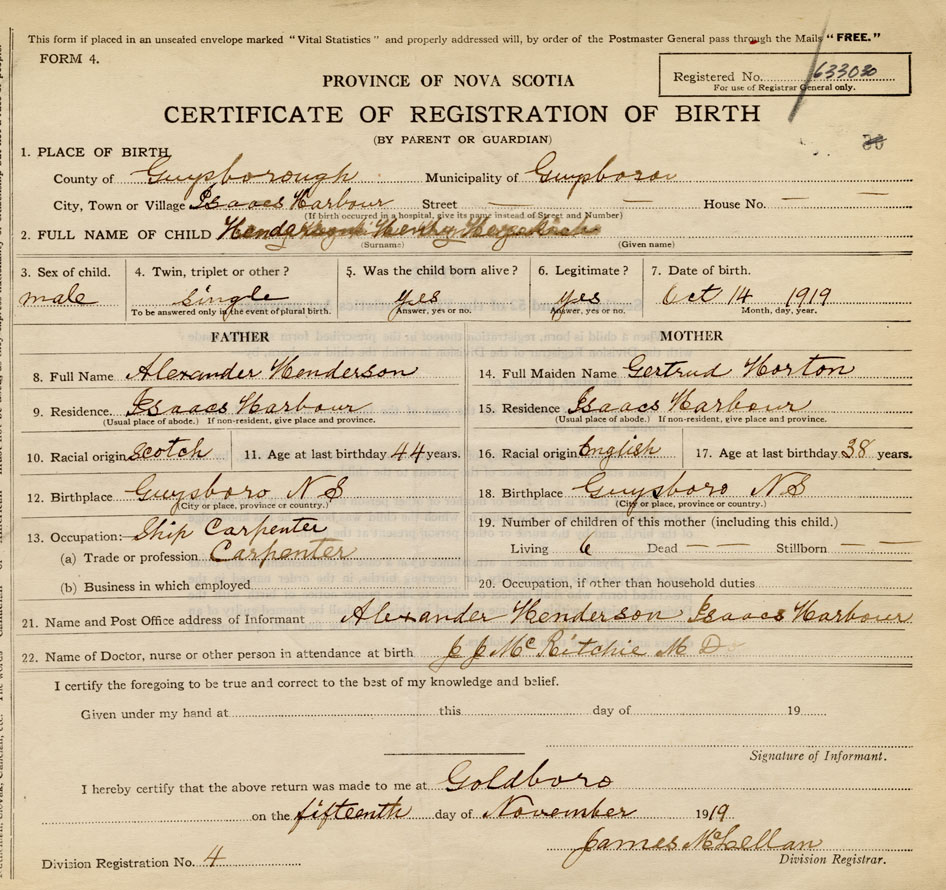 This form if placed in an unsealed envelope marked "Vital Statistics" and properly addressed will, by order of the Postmaster General pass through the Mails "FREE."
FORM 4.
PROVINCE OF NOVA SCOTIA
Registered No. 633030
For use of Registrar General only.
CERTIFICATE OF REGISTRATION OF BIRTH
(BY PARENT OR GUARDIAN)
1. PLACE OF BIRTH
County of Guysborough Municipality of Guysboro
City, Town or Village Isaacs Harbour Street — — House No. — —
(If birth occurred in a hospital, give its name instead of Street and Number)
2. FULL NAME OF CHILD Henderson Henry
(Surname) (Given name)
3. Sex of child. 4. Twin, triplet or other? 5. Was the child born alive? 6. Legitimate? 7. Date of birth.
male single yes yes Oct 14 1919
To be answered only in the event of plural birth. Answer, yes or no. Answer, yes or no. Month, day, year.
FATHER MOTHER
8. Full Name Alexander Henderson 14. Full Maiden Name Gertrud Horton
9. Residence. Isaacs Harbour 15. Residence Isaacs Harbour
(Usual place of abode.) If non-resident, give place and province. (Usual place of abode.) If non-resident, give place and province.
10. Racial origin Scotch 11. Age at last birthday 44 years. 16. Racial origin English 17. Age at last birthday 38 years.
12. Birthplace Guysboro NS 18. Birthplace Guysboro NS
(City or place, province or country.) (City or place, province or country.)
13. Occupation:— Ship Carpenter 19. Number of children of this mother (including this child.)
(a) Trade or profession Carpenter Living 6 Dead — — Stillborn — —
(b) Business in which employed 20. Occupation, if other than household duties
21. Name and Post Office address of Informant Alexander Henderson Isaacs Harbour
22. Name of Doctor, nurse or other person in attendance at birth J J McRitchie M D
I certify the foregoing to be true and correct to the best of my knowledge and belief.
Given under my hand at this day of 19
Signature of Informant.
I hereby certify that the above return was made to me at Goldboro
on the fifteenth day of November 1919
James McLellan
Division Registration No. 4 Division Registrar.